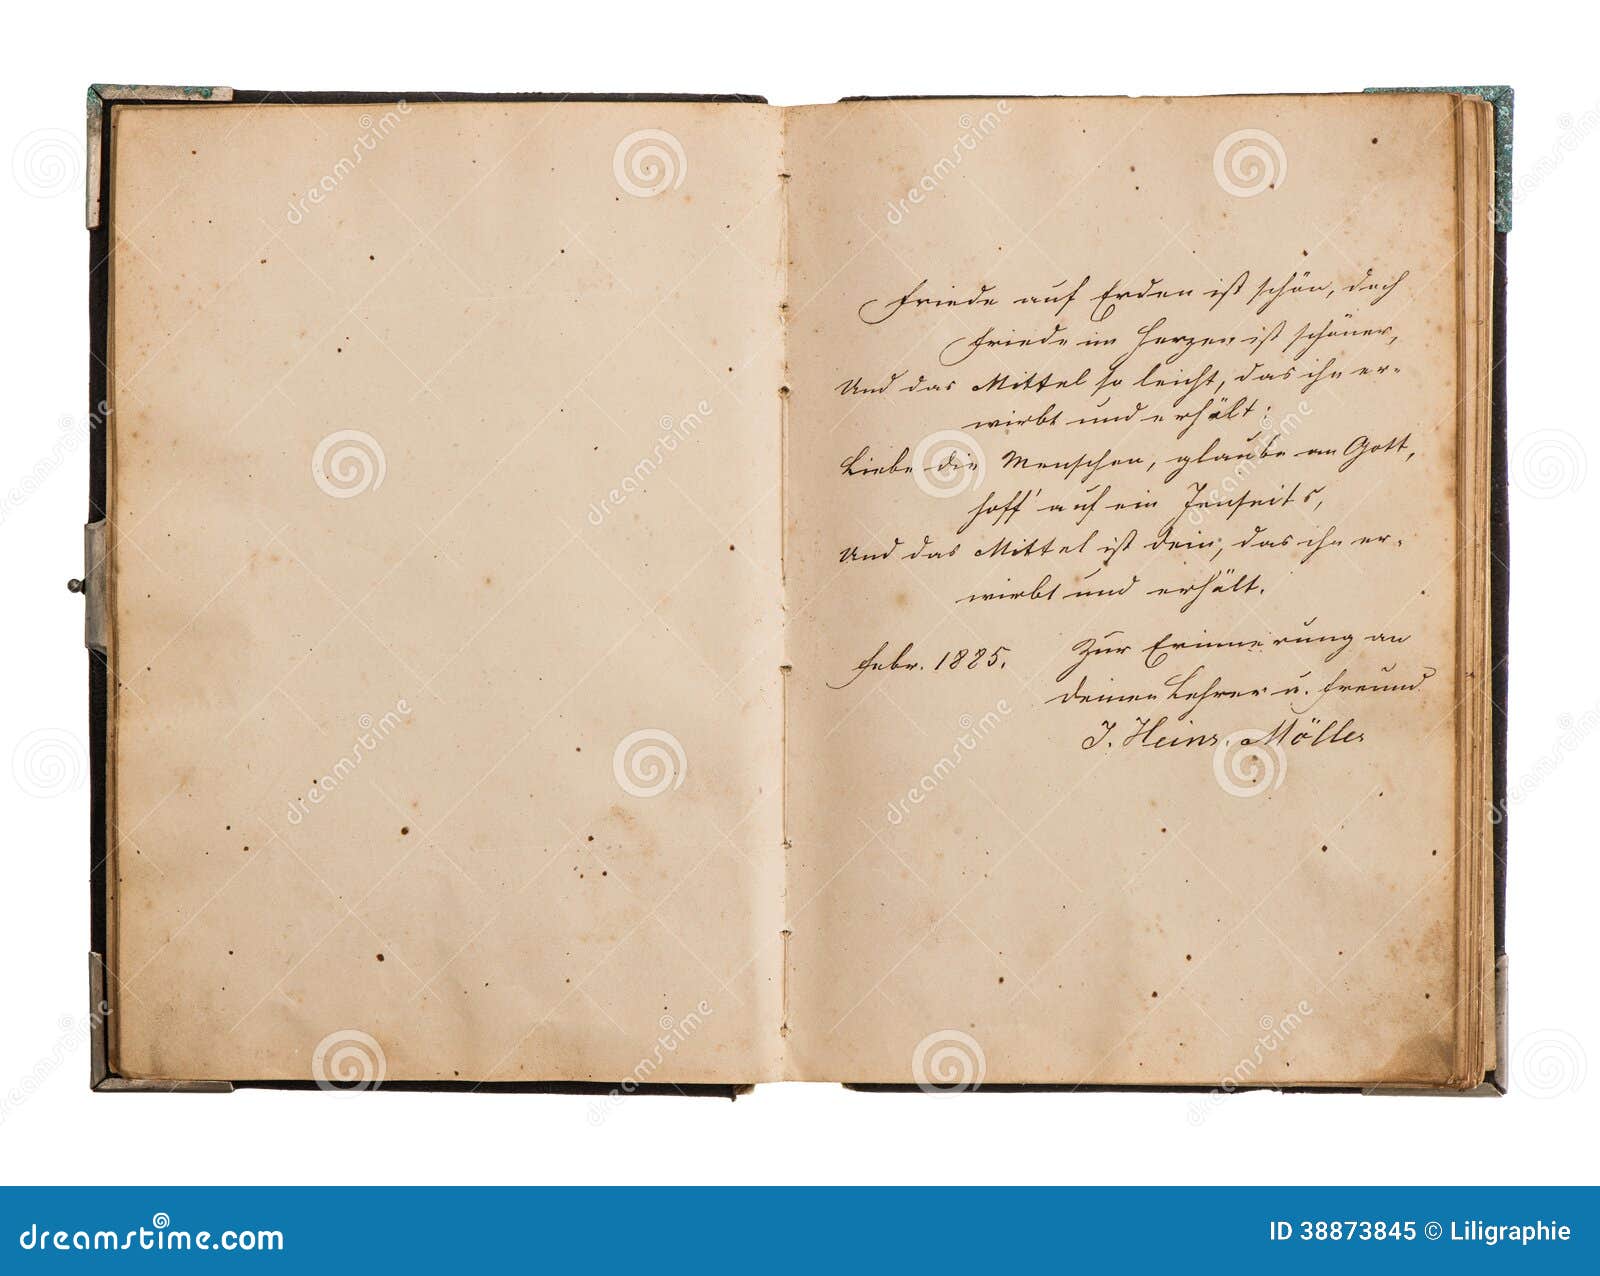 Friede auf Erden ist schön, doch
Friede im Herzen ist schöner,
Und das Mittel so leicht, das ihn er-
wirbt und erhält:
Liebe die Menschen, glaube an Gott,
hoff' auf ein Jenseits,
Und das Mittel ist dein, das ihn er-
wirbt und erhält.
Febr. 1885. Zur Erinnerung an
deinen Lehrer u. Freund
J. Heinr. Möller
dreamstime.com
ID 38873845 © Liligraphie